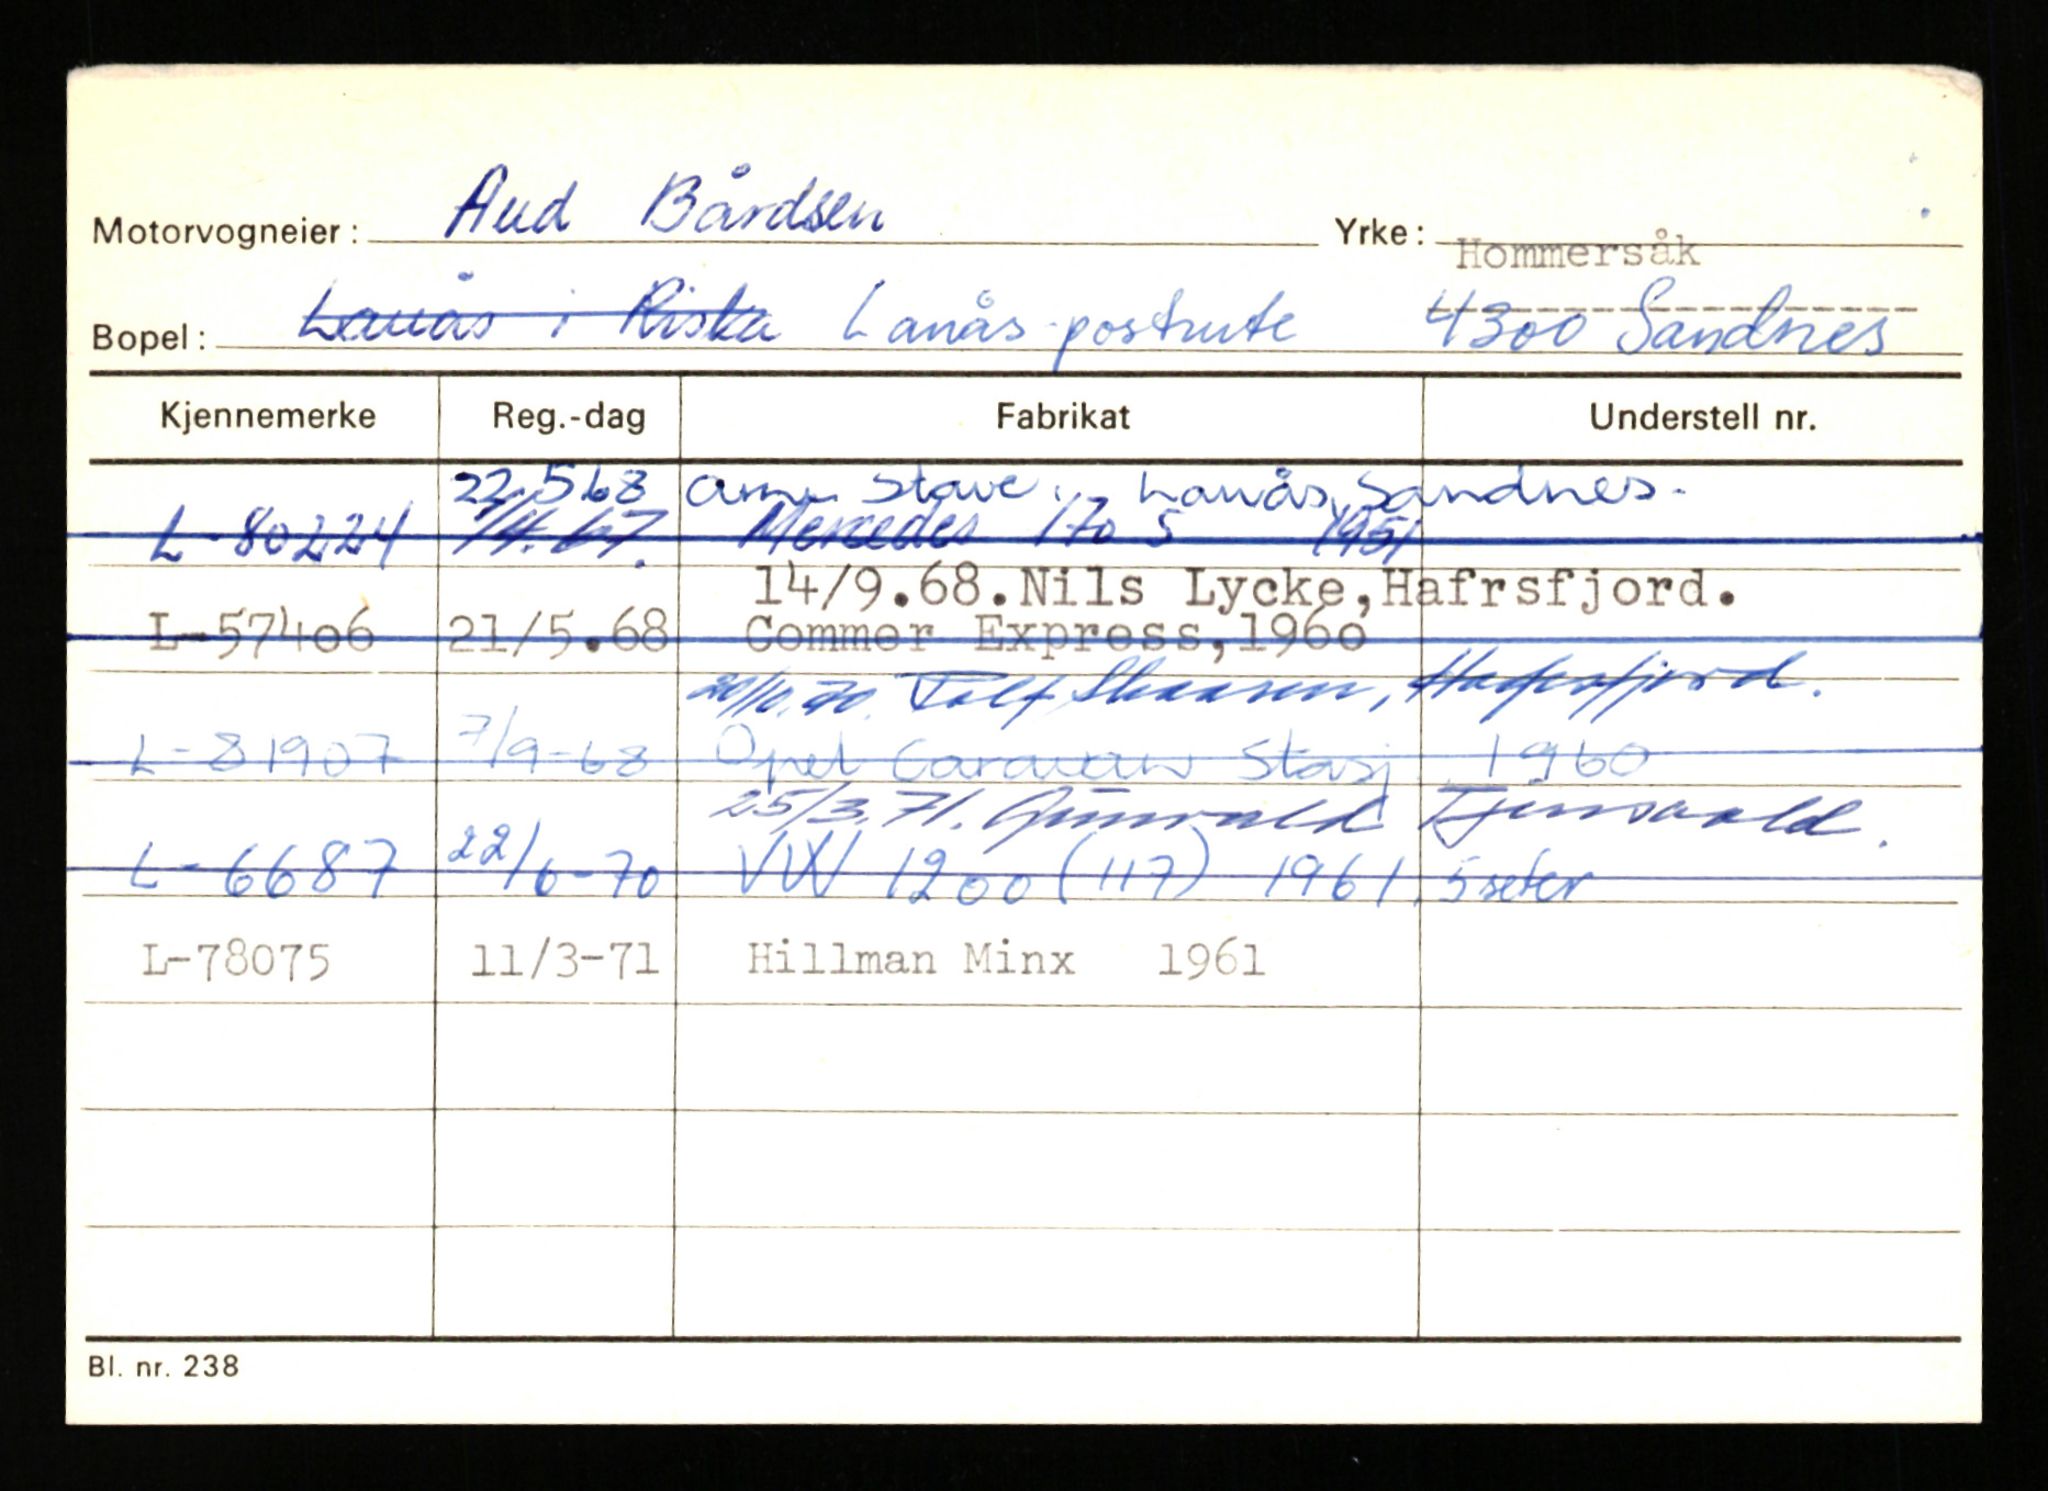 Motorvogneier: Aud Bårdsen Yrke:
Hommersåk
Bopel: Lanås i Riska Lanås postrute 4300 Sandnes
Kjennemerke Reg.-dag Fabrikat Understell nr.
22.5 68 Stave. Lanås, Sandnes.
L-80224 7/4.67. Mercedes 170 S 1951
14/9.68.Nils Lycke,Hafrsfjord.
L-57406 21/5.68 Commer Express,1960
Hafrsfjord.
L-81907 7/9-68 Opel Caravan Stasj 1960
25/3.71.
L-6687 22/6-70 VW 1200 (117) 1961 5 seter
L-78075 11/3-71 Hillman Minx 1961
Bl. nr. 238